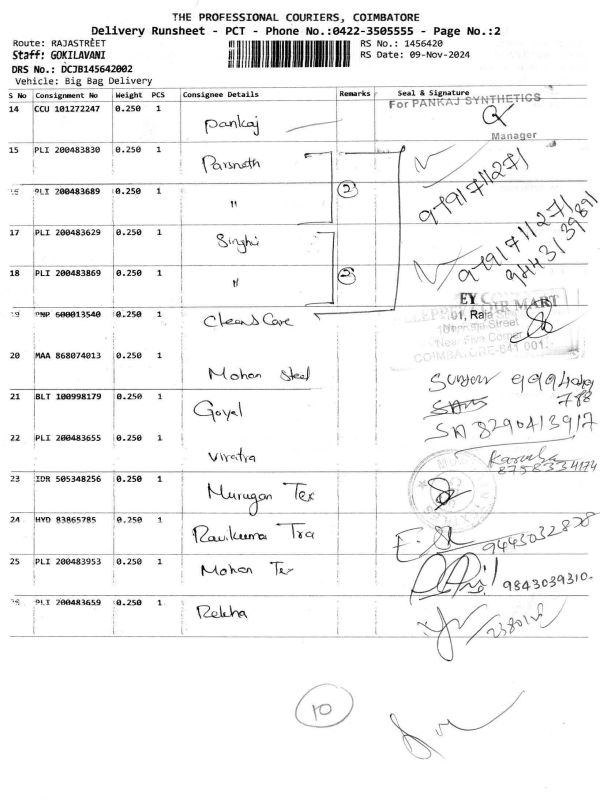 THE PROFESSIONAL COURIERS, COIMBATORE
Delivery Runsheet - PCT - Phone No.:0422-3505555 - Page No.:2
Route: RAJASTREET
RS No.: 1456420
Staff: GOKILAVANI
RS Date: 09-Nov-2024
DRS No.: DCJB145642002
Vehicle: Big Bag Delivery
S No Consignment No Weight PCS Consignee Details Remarks Seal & Signature
14 CCU 101272247 0.250 1 Pankaj For PANKAJ SYNTHETICS
Manager
15 PLI 200483830 0.250 1 Parsnath
16 PLI 200483689 0.250 1 " 2 9791711271
17 PLI 200483629 0.250 1 Singhi 9791711271
9443139891
18 PLI 200483869 0.250 1 " 2
19 PNP 600013540 0.250 1 Clean & Care
101, Raja Street
Near Five Corner
COIMBATORE-641 001.
20 MAA 868074013 0.250 1 Mohan Steel
21 BLT 100998179 0.250 1 Goyal
788
SA 8290413917
22 PLI 200483655 0.250 1 Viratra
8758334174
23 IDR 505348256 0.250 1 Murugan Tex
24 HYD 83865785 0.250 1 Ravikumar Tra 9443032828
25 PLI 200483953 0.250 1 Mohan Tex 9843039310.
26 PLI 200483659 0.250 1 Rekha 2380128
10